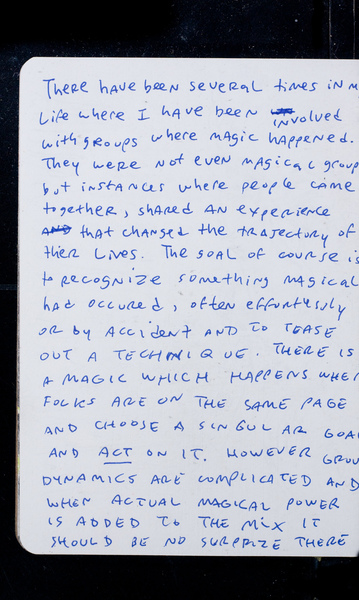 There have been several times in m
Life where I have been involved
with groups where magic happened.
They were not even magical group
but instances where people came
together, shared an experience
AND that changed the trajectory of
thier lives. The goal of course is
to recognize something magical
had occured, often effortlessly
OR BY ACCIDENT AND TO TEASE
OUT A TECHNIQUE. THERE IS
A MAGIC WHICH HAPPENS WHEN
FOLKS ARE ON THE SAME PAGE
AND CHOOSE A SINGULAR GOAL
AND ACT ON IT. HOWEVER GROU
DYNAMICS ARE COMPLICATED AND
WHEN ACTUAL MAGICAL POWER
IS ADDED TO THE MIX IT
SHOULD BE NO SURPRIZE THERE